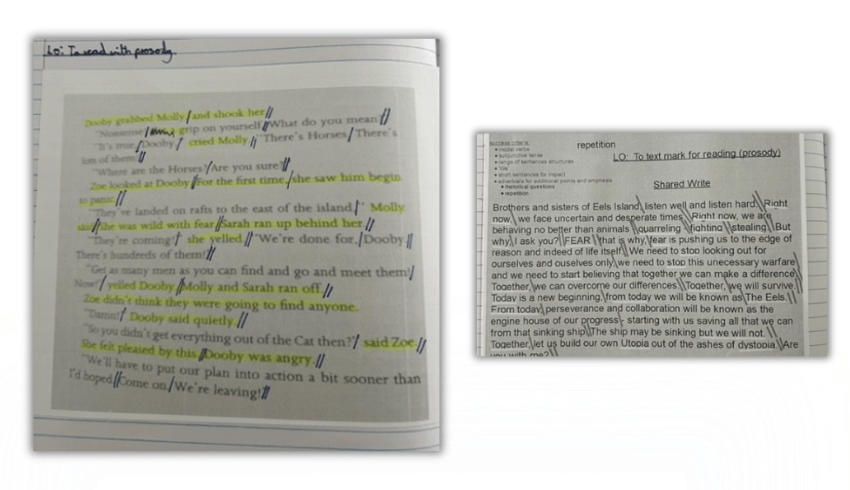 LO: To read with prosody.
Dooby grabbed Molly/and shook her//
"Nonsense/ grip on yourself//What do you mean?//
"It's true,/Dooby/ cried Molly.// "There's Horses/ There's
lots of them!//
"Where are the Horses?/Are you sure?//
Zoe looked at Dooby/For the first time,/she saw him begin
to panic.//
"They've landed on rafts to the east of the island,/" Molly
said/she was wild with fear.//Sarah ran up behind her.//
"They're coming!/ she yelled.//"We're done for./Dooby.//
There's hundreds of them!//
"Get as many men as you can find and go and meet them!/
Now!/ yelled Dooby.//Molly and Sarah ran off.//
Zoe didn't think they were going to find anyone.
"Damn!/ Dooby said quietly.//
"So you didn't get everything out of the Cat then?/ said Zoe.//
She felt pleased by this.//Dooby was angry.//
"We'll have to put our plan into action a bit sooner than
I'd hoped.//Come on,/We're leaving!//
repetition
• modal verbs
• subjunctive tense
• range of sentences structures
• short sentences for impact
• adverbials for additional points and emphasis
• rhetorical questions
• repetition
LO: To text mark for reading (prosody)
Shared Write
Brothers and sisters of Eels Island,\listen well and listen hard.\\Right
now,\ we face uncertain and desperate times.\\Right now, we are
behaving no better than animals \quarreling \fighting \stealing.\\But
why,\ I ask you?\\FEAR \\that is why,\fear is pushing us to the edge of
reason and indeed of life itself.\\We need to stop looking out for
ourselves and ouselves only,\we need to stop this unecessary warfare
and we need to start believing that together we can make a difference.\\
Together,\we can overcome our differences.\\Together,\we will survive.
Today is a new beginning,\from today we will be known as The Eels.\\
From today,\perseverance and collaboration will be known as the
engine house of our progress\- starting with us saving all that we can
from that sinking ship.\\The ship may be sinking but we will not.\\
Together,\let us build our own Utopia out of the ashes of dystopia.\\Are
you with me?\\